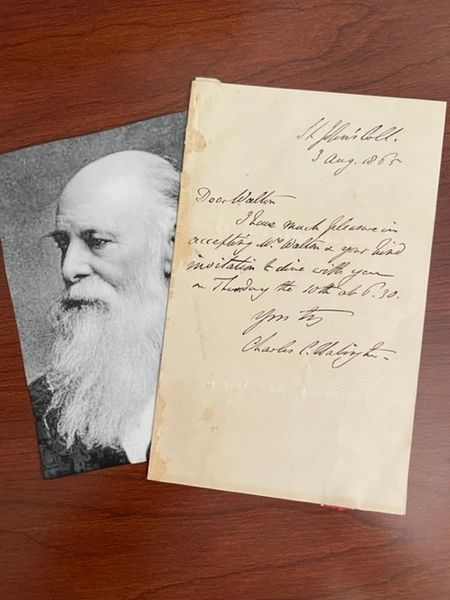 St John's Coll.
3 Aug. 1865
Dear Walton
I have much pleasure in
accepting Mrs Walton & your kind
invitation to dine with you
on Thursday the 10th at 6.30.
Yours try
Charles C. Babington